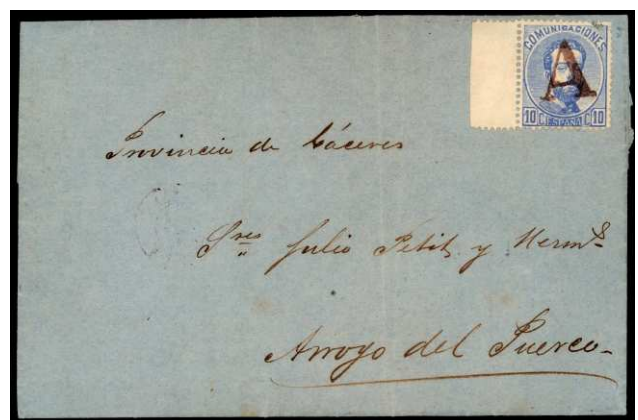 COMUNICACIONES
A
10 C ESPAÑA C 10
Provincia de Cáceres
Sres Julio Petit y HermS
Arroyo del Puerco